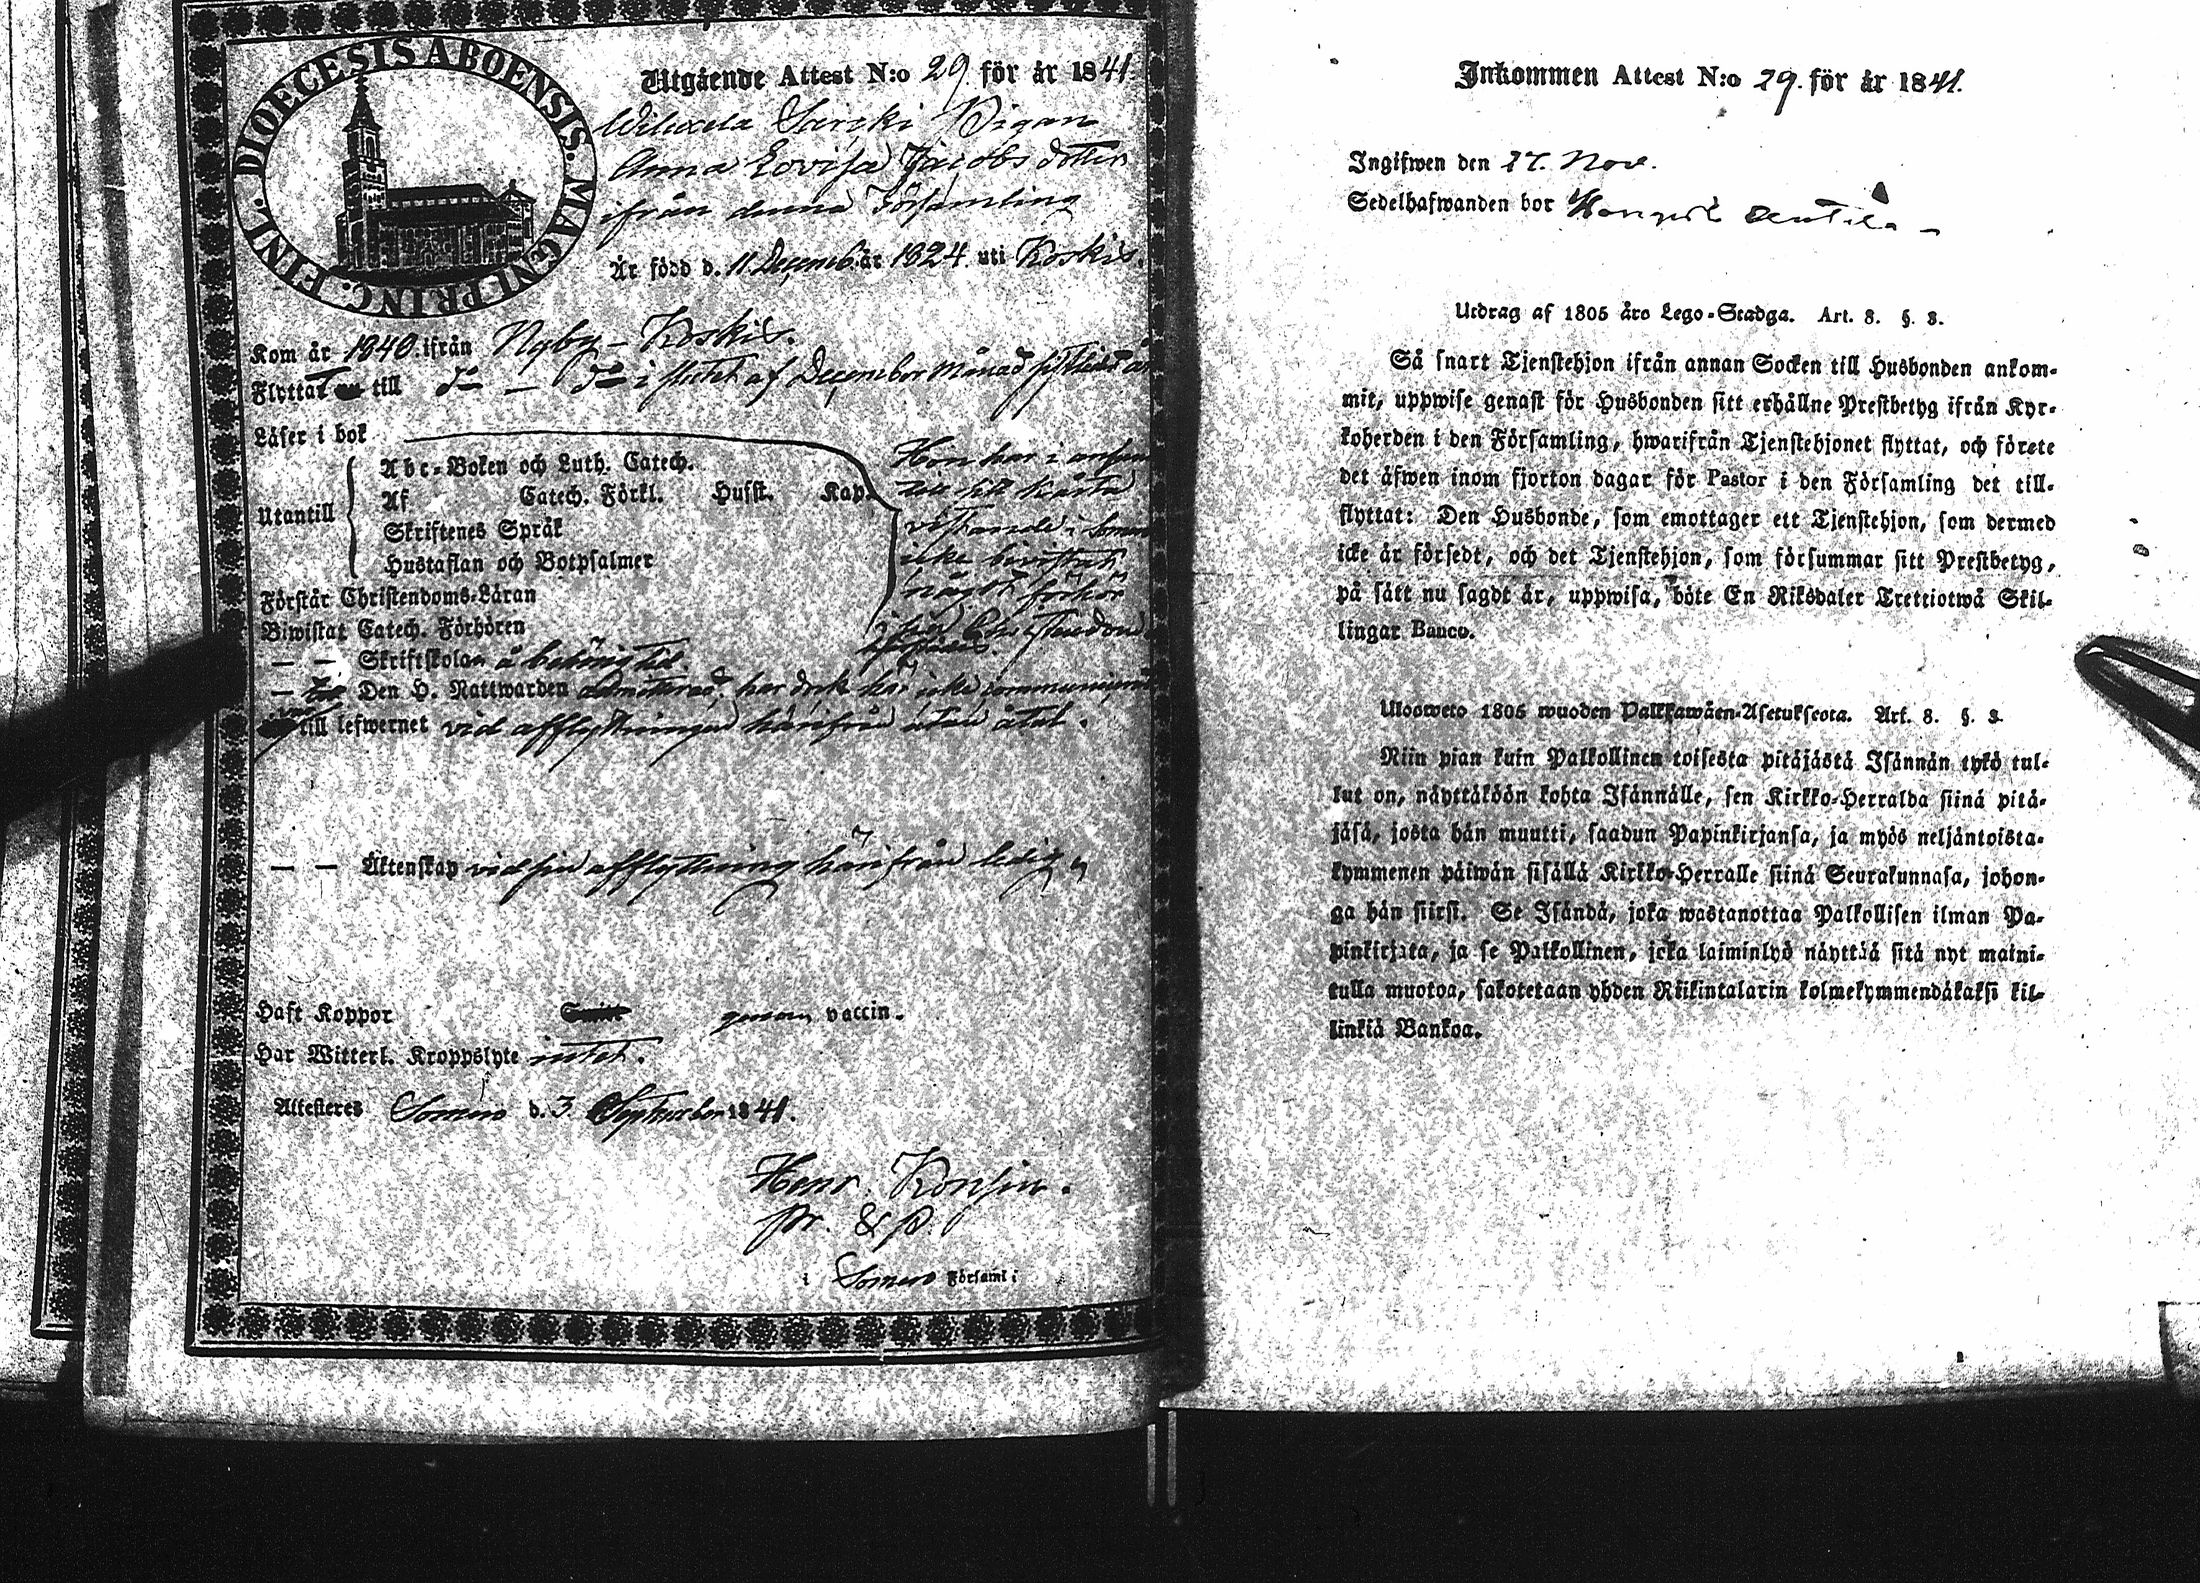 DIOECESIS ABOENSIS. MAGNI PRINC. FINL.
Utgående Attest N:o 29 för år 1841.
Pigan
Anna Lovisa Jacobsdotter
ifrån denna Församling
Är född d. 11 Decemb. år 1824. uti Koskis.
Kom år 1840. ifrån Nyby - Koskis.
Flyttat till do - do i slutet af December månad sistledit år
Läser i bok
Utantill
Abc-Boken och Luth. Catech.
Af Catech. Förkl. Husst. Kap.
Skriftenes Språk
Hustaflan och Botpsalmer
Hon har i
vistande i Somero
icke bivistat
något förhör
Christendom
Förstår Christendoms-Läran
Biwistat Catech. Förhören
— — Skriftskolan å behörig tid.
— Den H. Nattwarden admitterad, har dock här icke communicerat
till lefwernet vid afflyttningen härifrån utan åtal.
— — Äktenskap vid sin afflyttning härifrån ledig,
Haft Koppor genom vaccin.
Har Witterl. Kroppslyte intet.
Attesteres Somero d. 3 September 1841.
Henr. Konsin.
pr. & p.
i Somero Församl:
Inkommen Attest N:o 29. för år 1841.
Ingifwen den 27. Nov.
Sedelhafwanden bor
Utdrag af 1805 års Lego-Stadga. Art. 8. §. 3.
Så snart Tjenstehjon ifrån annan Socken till Husbonden ankom-
mit, uppwise genast för Husbonden sitt erhållne Prestbetyg ifrån Kyr-
koherden i den Församling, hwarifrån Tjenstehjonet flyttat, och förete
det äfwen inom fjorton dagar för Pastor i den Församling det till-
flyttat: Den Husbonde, som emottager ett Tjenstehjon, som dermed
icke är försedt, och det Tjenstehjon, som försummar sitt Prestbetyg,
på sätt nu sagdt är, uppwisa, böte En Riksdaler Trettiotwå Skil-
lingar Banco.
Ulosweto 1805 wuoden Palkkawäen-Asetuksesta. Art. 8. §. 3.
Niin pian kuin Palkollinen toisesta pitäjästä Isännän tykö tul-
lut on, näyttäköön kohta Isännälle, sen Kirkko-Herralda siinä pitä-
jäsä, josta hän muutti, saadun Papinkirjansa, ja myös neljäntoista-
kymmenen päiwän sisällä Kirkko-Herralle siinä Seurakunnasa, johon-
ga hän siirsi. Se Isändä, joka wastanottaa Palkollisen ilman Pa-
pinkirjata, ja se Palkollinen, joka laiminlyö näyttää sitä nyt maini-
tulla muotoa, sakotetaan yhden Riikintalarin kolmekymmendäkaksi kil-
linkiä Bankoa.